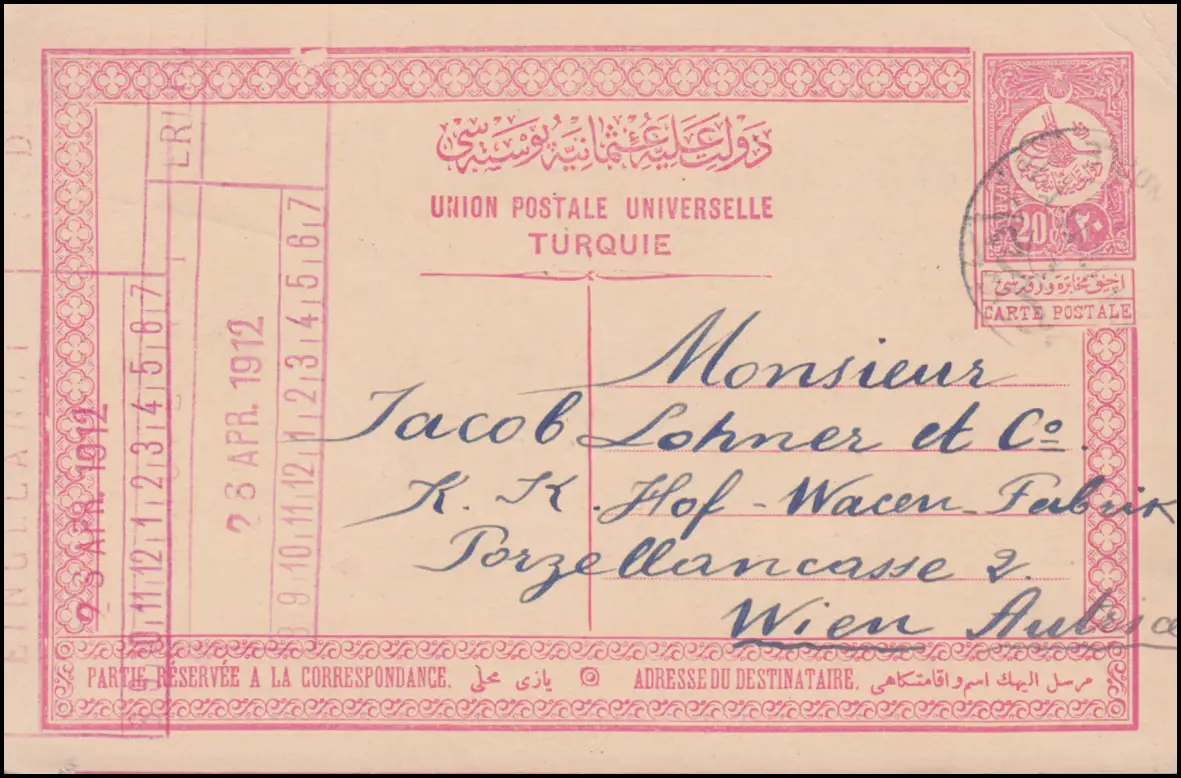 دولت علیه عثمانیه پوسته سی
UNION POSTALE UNIVERSELLE
TURQUIE
20 ٢٠
آچیق مخابره ورقه سی
CARTE POSTALE
Monsieur
Jacob Lohner et Co.
K. K. Hof - Wacen - Fabrik
Porzellancasse 2.
Wien Autria
PARTIE RÉSERVÉE A LA CORRESPONDANCE. یازی محلی
ADRESSE DU DESTINATAIRE. مرسل الیهك اسم و اقامتكاهی
EINGELANGT
23 APR. 1912
8 9 10 11 12 1 2 3 4 5 6 7
23 APR. 1912
8 9 10 11 12 1 2 3 4 5 6 7